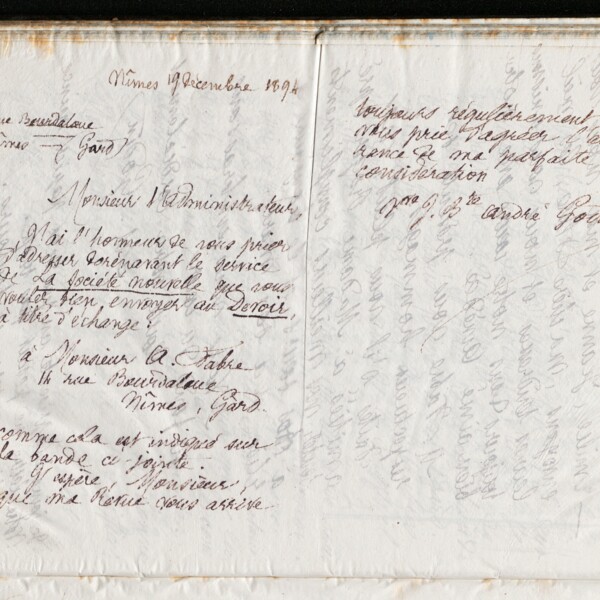 Nîmes 19 Décembre 1894
rue Bourdaloue
Nîmes – Gard
Monsieur l'Administrateur,
J'ai l'honneur de vous prier
d'adresser dorénavant le service
de La Société nouvelle que vous
voulez bien envoyer au Devoir,
à titre d'échange :
à Monsieur A. Fabre
14 rue Bourdaloue
Nîmes, Gard.
comme cela est indiqué sur
la bande ci jointe.
J'espère, Monsieur,
que ma Revue vous arrive
toujours régulièrement
vous prie d'agréer
rance de ma parfaite
considération
J. Bte André God